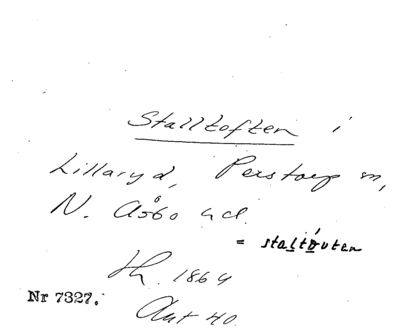 Stalltoften i
Lillaryd, Perstorp sn,
N. Åsbo hd.
= staltouten
Hh. 1864
Nr 7327.
Ant 40